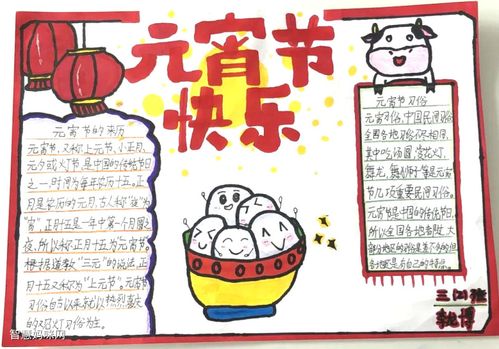 元宵节
快乐
元宵节的来历
元宵节，又称上元节，小正月、
元夕或灯节，是中国的传统节日
之一，时间为每年农历十五，正
月是农历的元月，古人称"夜"为
"宵"，正月十五是一年中第一个月圆之
夜，所以称正月十五为元宵节。
根据道教"三元"的说法，正
月十五又称为"上元节"。元宵节
习俗自古以来就以热烈喜庆
的观灯习俗为主。
元宵节习俗
元宵习俗，中国民间习俗
全国各地习俗不尽相同，
其中吃汤圆、赏花灯、
舞龙、舞狮子等是元宵
节几项重要民间习俗。
元宵节是中国的传统节日，
所以全国各地皆过，大
部分地区的习俗是差不多的，但
各地还是有自己的特点。
三(2)班
智慧妈咪网